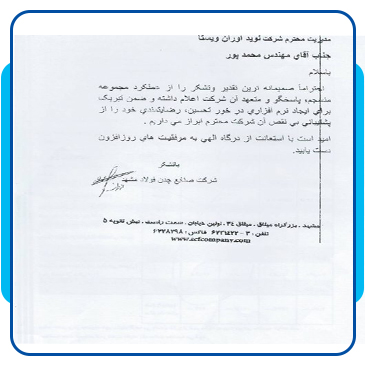 مدیریت محترم شرکت نوید آوران ویستا
جناب آقاي مهندس محمد پور
باسلام
احتراماً صمیمانه ترین تقدیر وتشکر را از عملکرد مجموعه
منسجم، پاسخگو و متعهد آن شرکت اعلام داشته و ضمن تبریک
براي ایجاد نرم افزاري در خور تحسین، رضایتمندي خود را از
پشتیباني بي نقص آن شرکت محترم ابراز مي داریم .
امید است با استعانت از درگاه الهي به موفقیت هاي روزافزون
دست یابید.
باتشکر
شرکت صنایع چدن فولاد مشهد
مشهد ، بزرگراه میثاق ، میثاق ۳٤ ، اولین خیابان ، سمت راست ، نبش ثانویه ٥
تلفن : ۳ - فاکس :
www.ccfcompany.com